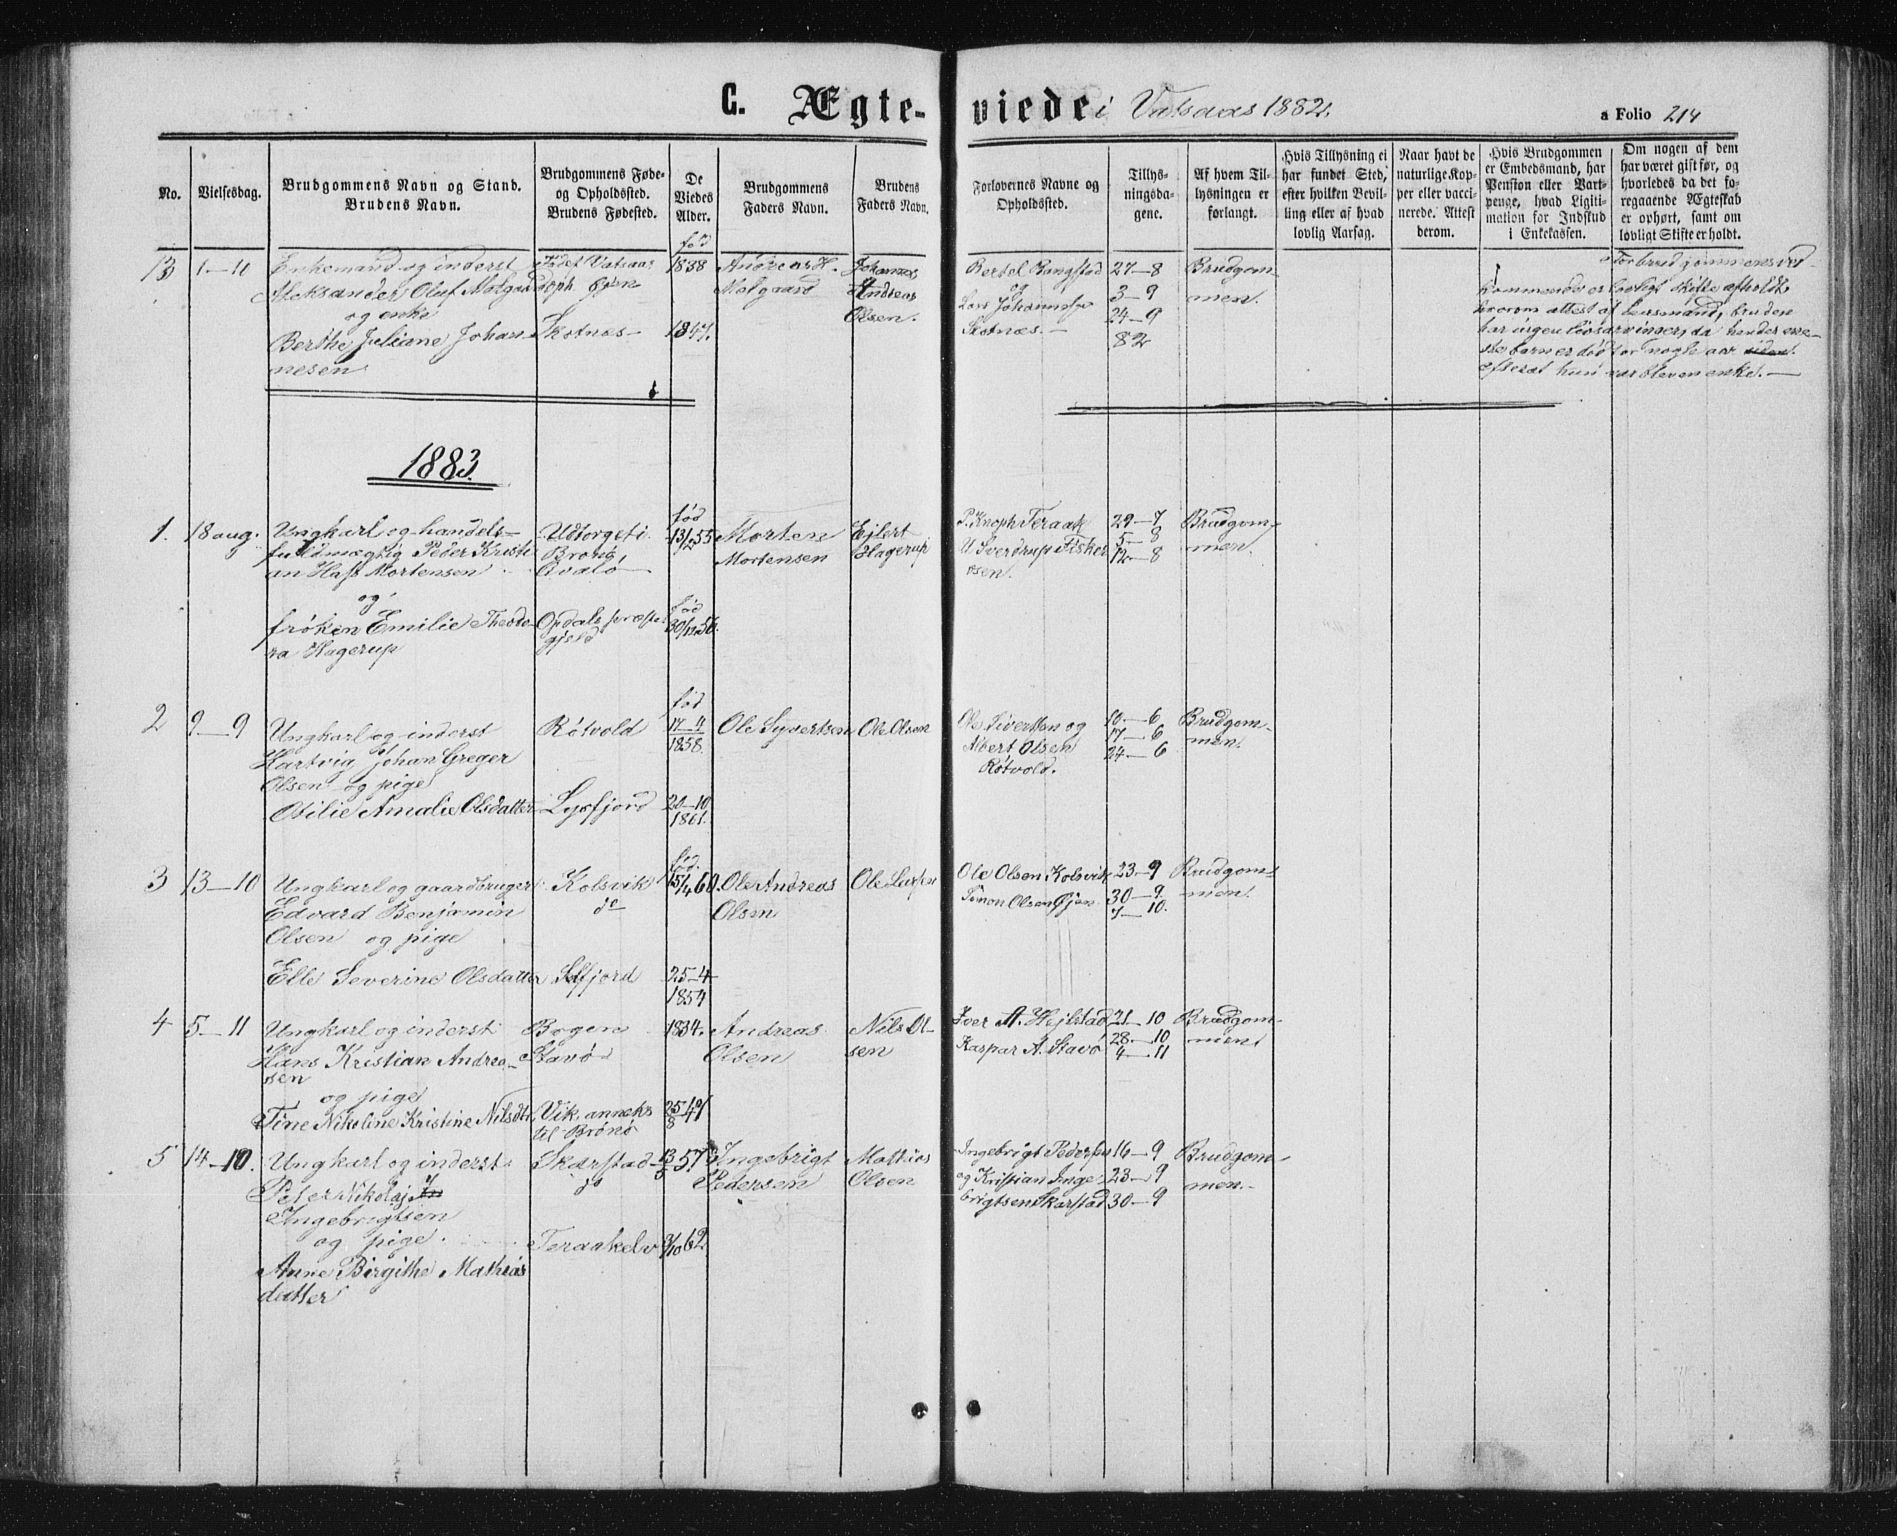 C. Ægte-viede i Vatsaas 1882.
a Folio 214
No.
Vielsesdag.
Brudgommens Navn og Stand.
Brudens Navn.
Brudgommens Føde-
og Opholdssted.
Brudens Fødested.
De
Viedes
Alder.
Brudgommens
Faders Navn.
Brudens
Faders Navn.
Forlovernes Navne og
Opholdssted.
Tillys-
ningsda-
gene.
Af hvem Til-
lysningen er
forlangt.
Hvis Tillysning ei
har fundet Sted,
efter hvilken Bevil-
ling eller af hvad
lovlig Aarsag.
Naar havt de
naturlige Kop-
per eller vacci-
nerede. Attest
derom.
Hvis Brudgommen
er Embedsmand, har
Pension eller Vart-
penge, hvad Ligiti-
mation for Indskud
i Enkekassen.
Om nogen af dem
har været gift før, og
hvorledes da det fo-
regaaende Ægteskab
er ophørt, samt om
lovligt Skifte er holdt.
13 1–10 Enkemand og inderst
Aleksander Oluf Molgaard
og enke
Berthe Juliane Johan-
nesen
Vatsaas
oph. Gjøn
Skotnes
fød
1838
1847.
Andreas H.
Molgaard
Johannes
Andreas
Olsen.
Bertel Bangstad
og
Lars Johannesen
Skotnæs.
27–8
3–9
24–9
82
Brudgom-
men.
For brudgommens ved-
kommende er lovligt skifte afholdt
hvorom attest af lensmand, bruden
har ingen livsarvinger, da hendes ene-
ste barn er død for nogle aar siden
efterat hun var bleven enke.
1883
1. 18 aug. Ungkarl og handels-
fuldmægtig Peder Kristi-
an Hass Mortensen
og
frøken Emilie Theodo-
ra Hagerup
Udtorget i
Brønø,
Kvalø
Opdals præste-
gjeld
fød
13/2 55
fød
30/12 56.
Morten
Mortensen
Ejlert
Hagerup
P. Knoph Teraak
U Sverdrup Fisker-
osen.
29–7
5–8
12–8
Brudgom-
men.
2 9–9 Ungkarl og inderst
Hartvig Johan Greger
Olsen og pige
Otilie Amalie Olsdatter
Røtvold
Lysfjord
fød
17–4
1858.
20–10
1861.
Ole Syvertsen
Ole Olsen
Ole Sivertsen og
Albert Olsen
Røtvold.
10–6
17–6
24–6
Brudgom-
men.
3 13–10 Ungkarl og gaardbruger
Edvard Benjamin
Olsen og pige
Elle Severine Olsdatter
Kolsvik
do
Selfjord
fød.
15/4 60.
25–4
1854
Ole Andreas
Olsen
Ole Larsen
Ole Olsen Kolsvik
Simon Olsen Gjøn
23–9
30–9
7–10.
Brudgom-
men.
4 5–11 Ungkarl og inderst
Hans Kristian Andrea-
sen
og pige
Tine Nikoline Kristine Nilsdtr.
Bogen
Stavø
Vik, anneks
til Brønø
1834.
25/8 47
Andreas
Olsen
Nils Ol-
sen
Iver A. Hejlstad
Kaspar A. Stavø
21–10
28–10
4–11
Brudgom-
men
5 14–10. Ungkarl og inderst
Peter Nikolaj In
Ingebrigtsen
og pige.
Anne Birgithe Mathias
datter
Skarstad
do
Teraakelv
13/5 57
3/10 62
Ingebrigt
Pedersen
Mathias
Olsen
Ingebrigt Pedersen
og Kristian Inge-
brigtsen Skarstad
16–9
23–9
30–9
Brudgom-
men.